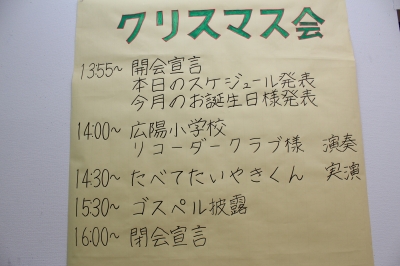 クリスマス会
13:55~ 開会宣言
本日のスケジュール発表
今月のお誕生日様発表
14:00~ 広陽小学校
リコーダークラブ様 演奏
14:30~ たべてたいやきくん 実演
15:30~ ゴスペル披露
16:00~ 閉会宣言